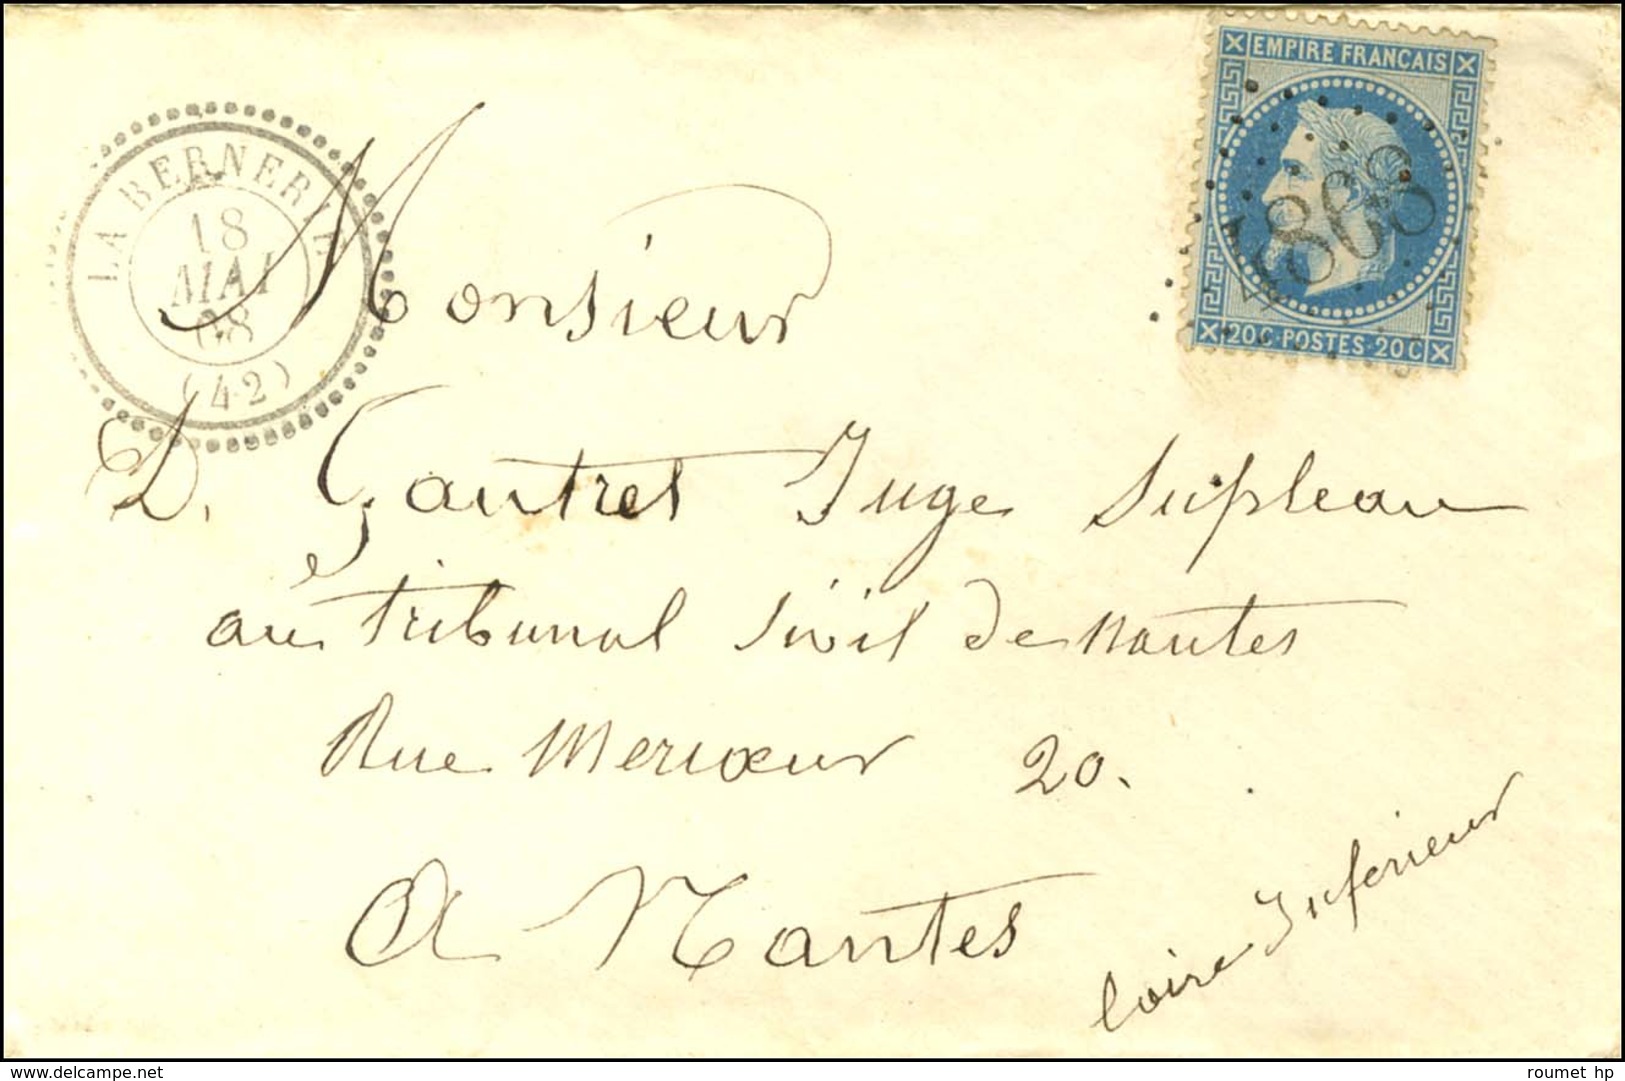 LA BERNERIE
18
MAI
68
(42)
EMPIRE FRANCAIS
4868
20 C · POSTES · 20 C
Monsieur
D. Gautret Juge Supleau
au Tribunal Sivil de Nantes
Rue Mercœur 20.
A Nantes
Loire Inferieur
www.delcampe.net
roumet hp